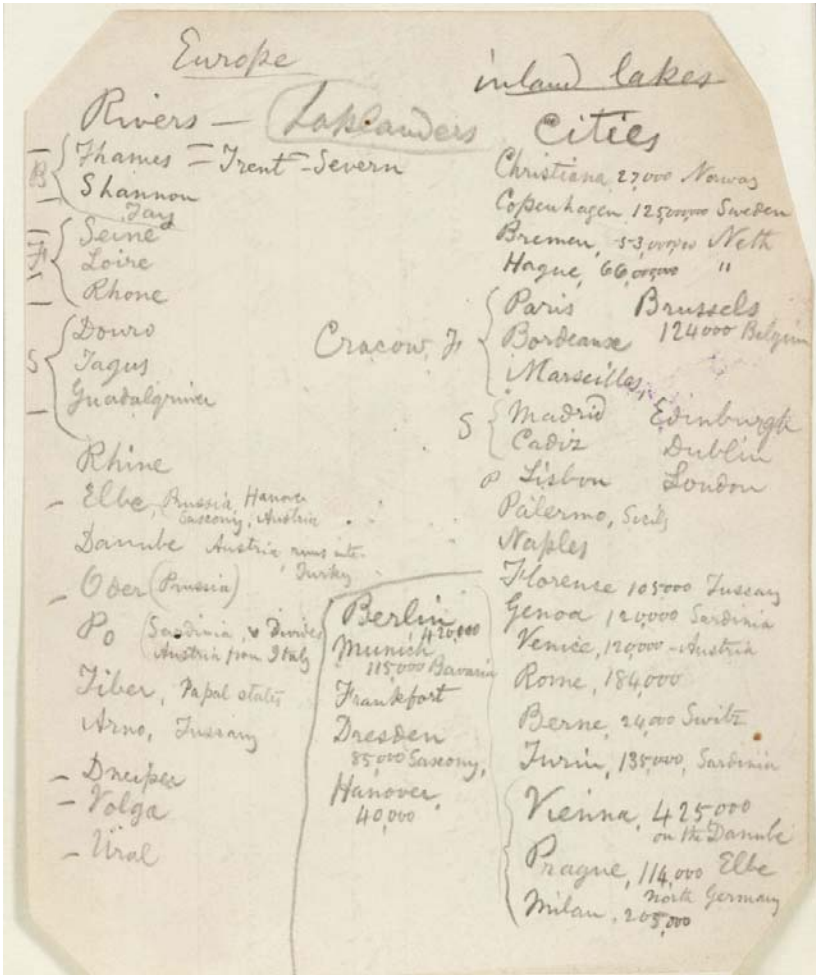 Europe
inland lakes
Rivers — Laplanders Cities
B Thames = Trent - Severn
Shannon
Tay
Fr Seine
Loire
Rhone
S Douro
Tagus
Guadalquiver
Rhine
- Elbe, Prussia, Hanover
Saxony, Austria
Danube Austria runs into
Turkey
- Oder (Prussia)
Po (Sardinia, & Divides
Austria from Italy
Tiber, Papal states
Arno, Tuscany
- Dneiper
- Volga
- Ural
Cracow,
Berlin
420,000
Munich
115,000 Bavaria
Frankfort
Dresden
85,000 Saxony,
Hanover,
40,000
Christiana, 27,000 Norway
Copenhagen, Sweden
Bremen, Neth
Hague, "
Fr Paris Brussels
Bordeaux 124000 Belgium
Marseilles,
S Madrid Edinburgh
Cadiz Dublin
P Lisbon London
Palermo, Sicily
Naples
Florence 105000 Tuscany
Genoa 120,000 Sardinia
Venice, 120,000 - Austria
Rome, 184,000
Berne, 24,000 Switz
Turin, 135,000, Sardinia
Vienna, 425,000
on the Danube
Prague, 114,000 Elbe
North Germany
Milan, 205,000